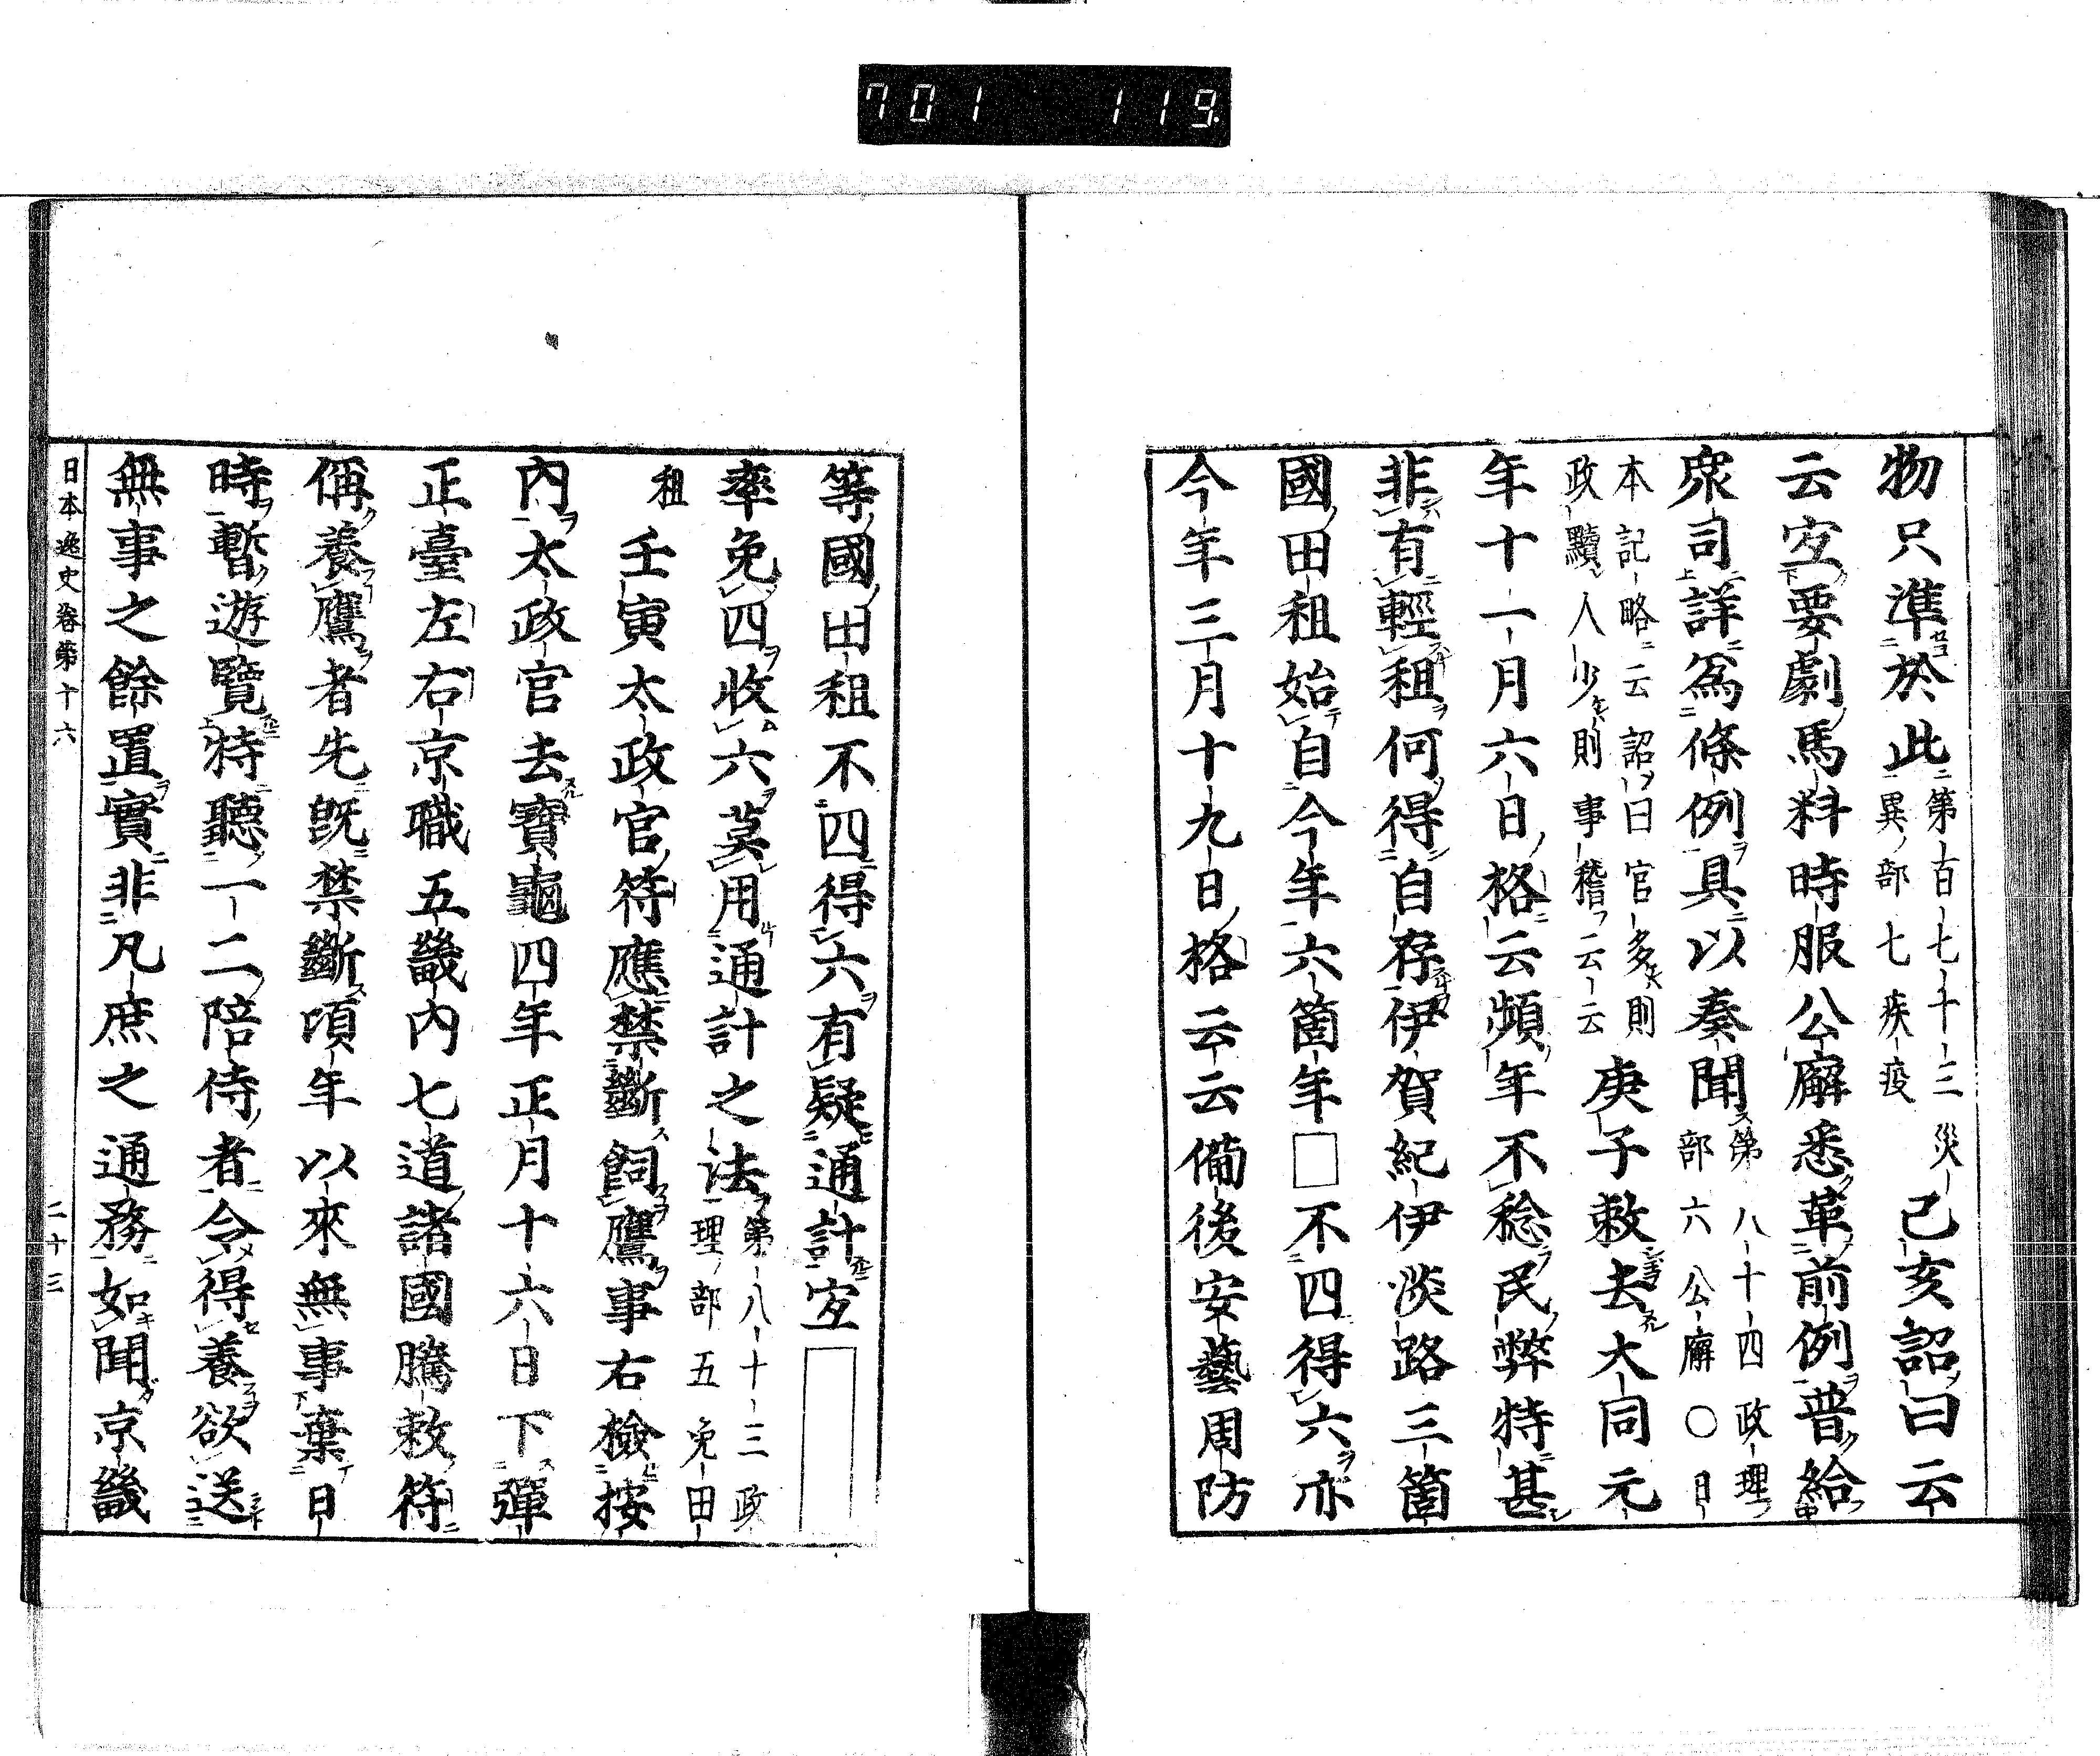 701 119
物只準於此第百七十三災異部七疾疫己亥詔曰云
云宜要劇馬料時服公廨悉革前例普給
衆司詳爲條例具以奏聞第八十四政理部六公廨〇日
本記略云詔曰官多則政黷人少則事稽云云庚子敕去大同元
年十一月六日格云頻年不稔民弊特甚
非有輕租何得自存伊賀紀伊淡路三箇
國田租始自今年六箇年□不四得六亦
今年三月十九日格云云備後安藝周防
等國田租不四得六有疑通計宜
率免四收六莫用通計之法第八十三政理部五免田
租壬寅太政官符應禁斷飼鷹事右檢按
內太政官去寶龜四年正月十六日下彈
正臺左右京職五畿內七道諸國騰敕符
偁養鷹者先旣禁斷頃年以來無事棄日
時暫遊覽特聽一二陪侍者令得養欲送
無事之餘置實非凡庶之通務如聞京畿
日本逸史卷第十六 二十三